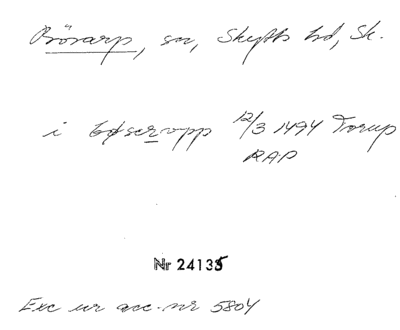 Bösarp, sn, Skytts hd, Sk.
i bøserupp 12/3 1494 Torup
RAP
Nr 24135
Exc ur acc. nr 5804